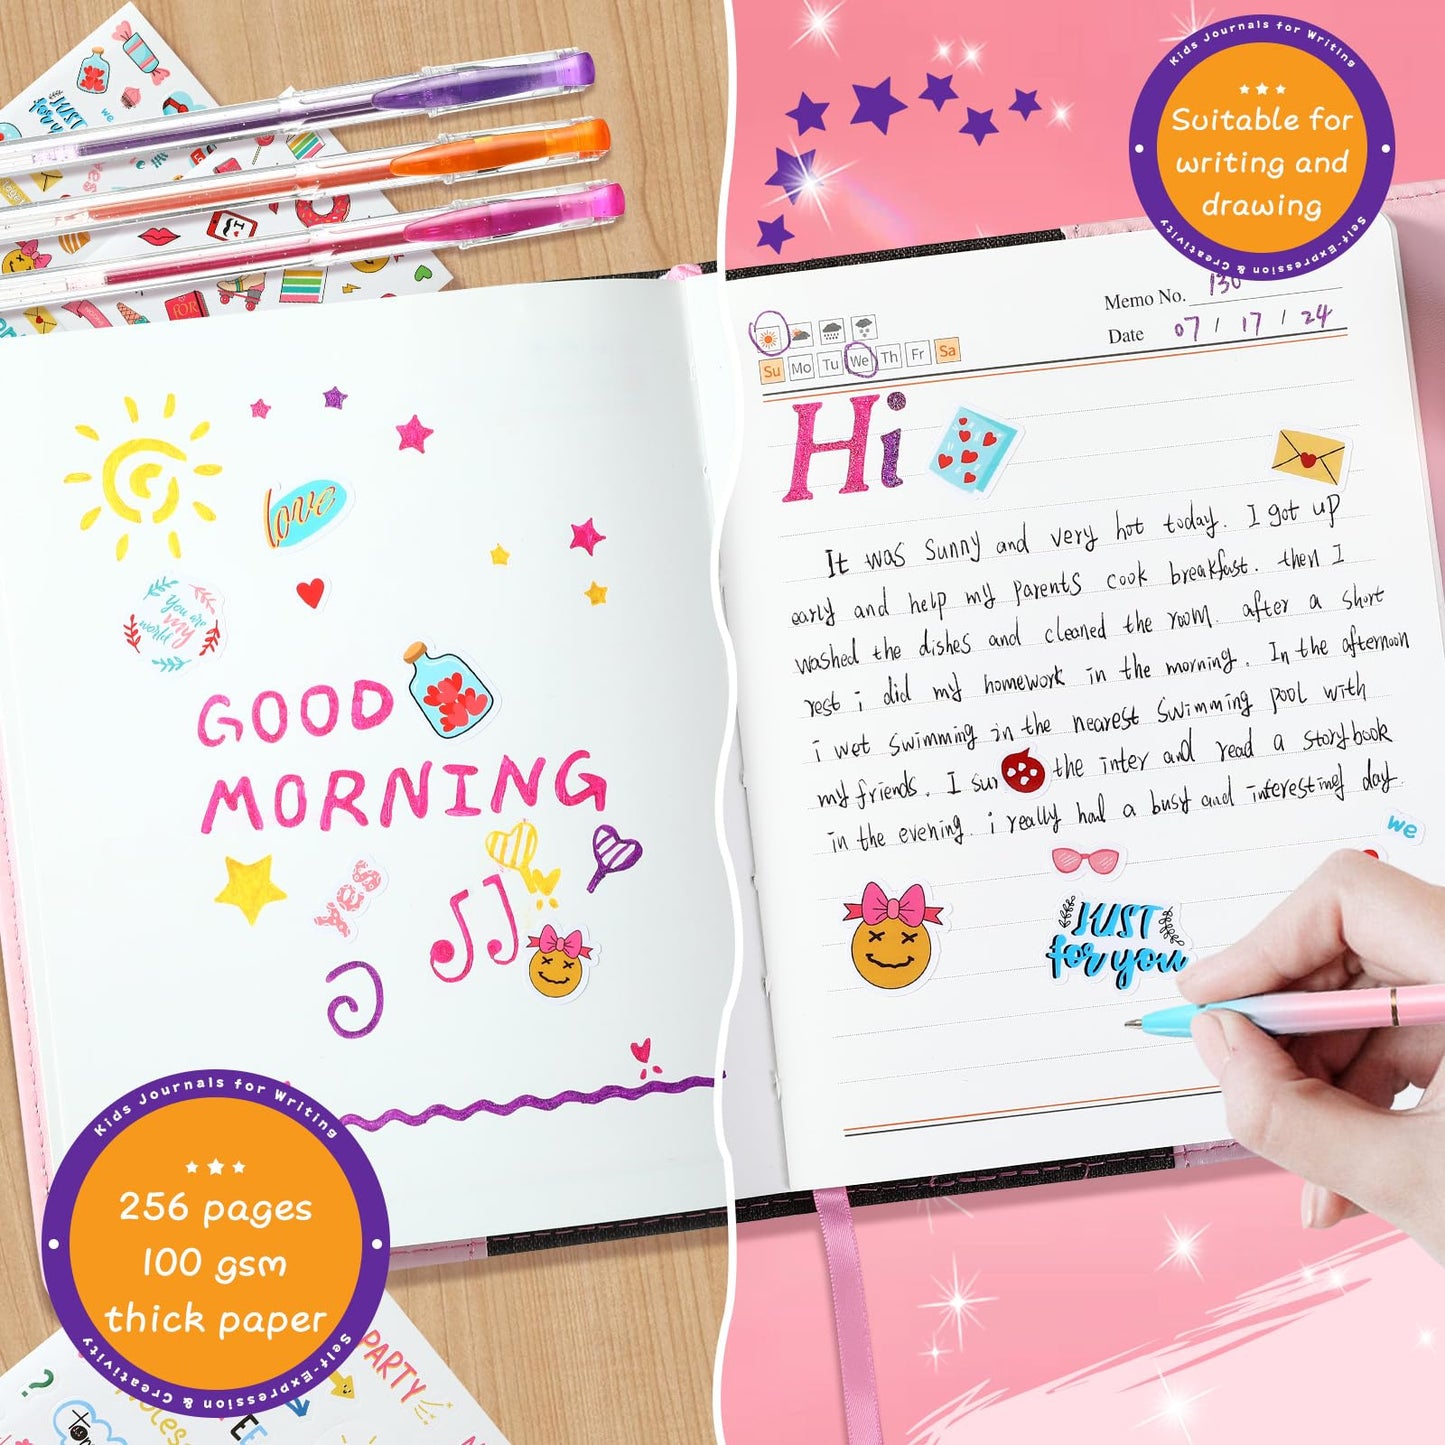 Kids Journals for Writing
Suitable for
writing and
drawing
Self-Expression & Creativity
JUST
for you
we
Memo No. 130
Date 07 / 17 / 24
Su Mo Tu We Th Fr Sa
Hi
It was sunny and very hot today. I got up
early and help my parents cook breakfast. then I
washed the dishes and cleaned the room. after a short
rest i did my homework in the morning. In the afternoon
i wet swimming in the nearest swimming pool with
my friends. I sur the inter and read a storybook
in the evening. i really had a busy and interesting day.
we
JUST
for you
love
You are
my
world
GOOD
MORNING
yes
Kids Journals for Writing
256 pages
100 gsm
thick paper
Self-Expression & Creativity
PARTY